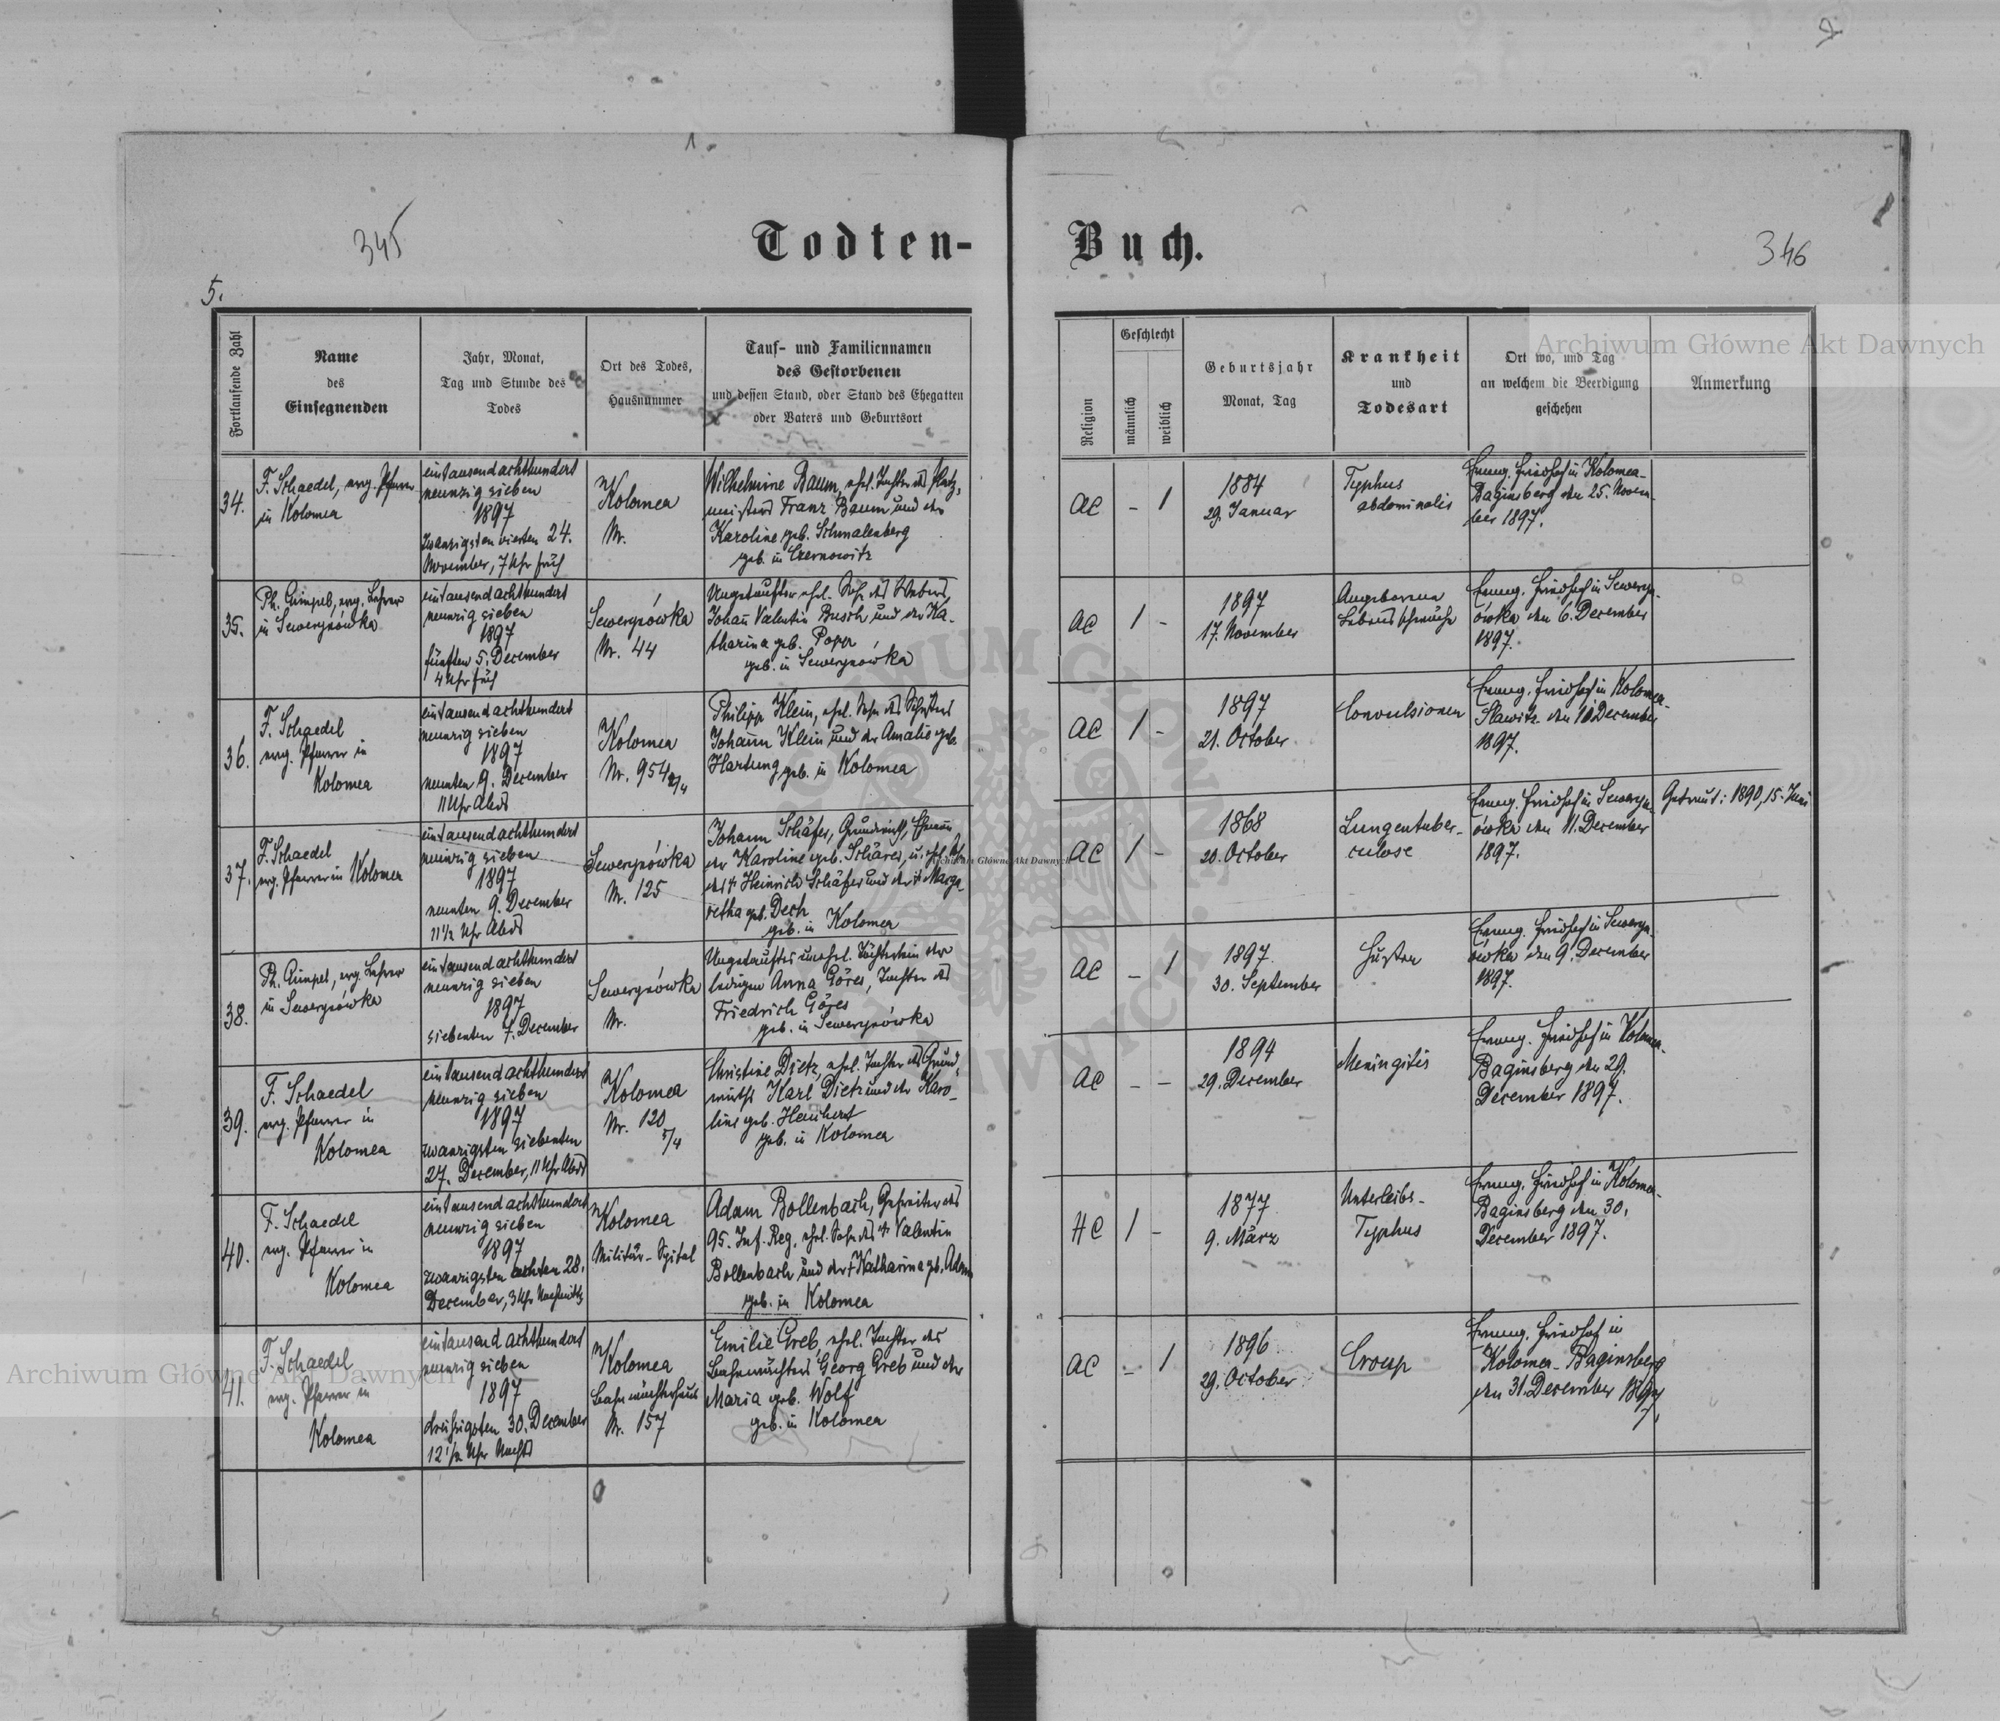 345
Todten-
Buch.
346
5.
Fortlaufende Zahl
Name
des
Einsegnenden
Jahr, Monat,
Tag und Stunde des
Todes
Ort des Todes,
Hausnummer
Tauf- und Familiennamen
des Gestorbenen
und dessen Stand, oder Stand des Ehegatten
oder Vaters und Geburtsort
Religion
Geschlecht
männlich
weiblich
Geburtsjahr
Monat, Tag
Krankheit
und
Todesart
Ort wo, und Tag
an welchem die Beerdigung
geschehen
Anmerkung
34.
F. Schaedel, evg. Pfarrer
in Kolomea
eintausendachthundert
neunzig sieben
1897
zwanzigsten vierten 24.
November, 7 Uhr früh
Kolomea
Nr.
Wilhelmine Baum, ehel. Tochter des Platz-
meisters Franz Baum und der
Karoline geb. Schmalenberg
geb. in Czernowitz
AC
-
1
1884
29. Januar
Typhus
abdominalis
Evang. Friedhof in Kolomea-
Baginsberg den 25. Novem-
ber 1897.
35.
Ph. Gimpel, evg. Lehrer
in Sewerynówka
eintausendachthundert
neunzig sieben
1897
fünften 5. December
4 Uhr früh
Sewerynówka
Nr. 44
Ungetaufter ehel. Sohn des Webers
Johann Valentin Busch und der Ka-
tharina geb. Popp
geb. in Sewerynówka
AC
1
-
1897
17. November
Angeborene
Lebensschwäche
Evang. Friedhof in Seweryn-
ówka den 6. December
1897.
36.
F. Schaedel
evg. Pfarrer in
Kolomea
eintausendachthundert
neunzig sieben
1897
neunten 9. December
11 Uhr Abds
Kolomea
Nr. 954
Philipp Klein, ehel. Sohn des
Johann Klein und der Amalie geb.
Hartung geb. in Kolomea
AC
1
-
1897
21. October
Convulsionen
Evang. Friedhof in Kolomea-
Slawitz den 10 December
1897.
37.
F. Schaedel
evg. Pfarrer in Kolomea
eintausendachthundert
neunzig sieben
1897
neunten 9. December
11 1/2 Uhr Abds
Sewerynówka
Nr. 125
Johann Schäfer, Grundwirth, Ehemann
der Karoline geb. Schäres, u. ehel. Sohn
des † Heinrich Schäfer und der † Marga-
retha geb. Dech
geb. in Kolomea
AC
1
-
1868
20. October
Lungentuber-
culose
Evang. Friedhof in Seweryn-
ówka den 11. December
1897.
Getraut: 1890, 15. Juni
38.
Ph. Gimpel, evg. Lehrer
in Sewerynówka
eintausendachthundert
neunzig sieben
1897
siebenten 7. December
Sewerynówka
Nr.
Ungetauftes unehel. Töchterlein der
ledigen Anna Göres, Tochter des
Friedrich Göres
geb. in Sewerynówka
AC
-
1
1897
30. September
Husten
Evang. Friedhof in Seweryn-
ówka den 9. December
1897.
39.
F. Schaedel
evg. Pfarrer in
Kolomea
eintausendachthundert
neunzig sieben
1897
zwanzigsten siebenten
27. December, 11 Uhr Abds
Kolomea
Nr. 120
5/4
Christine Dietz, ehel. Tochter des Grund-
wirths Karl Dietz und der Karo-
line geb. Heuchert
geb. in Kolomea
AC
-
-
1894
29. December
Meningitis
Evang. Friedhof in Kolomea-
Baginsberg den 29.
December 1897.
40.
F. Schaedel
evg. Pfarrer in
Kolomea
eintausendachthundert
neunzig sieben
1897
zwanzigsten achten 28.
December, 3 Uhr Nachmittg
Kolomea
Militär-Spital
Adam Bollenbach, Gefreiter des
95. Inf. Reg. ehel. Sohn des † Valentin
Bollenbach und der † Katharina geb. Adam
geb. in Kolomea
HC
1
-
1877
9. März
Unterleibs-
Typhus
Evang. Friedhof in Kolomea-
Baginsberg den 30.
December 1897.
41.
F. Schaedel
evg. Pfarrer in
Kolomea
eintausendachthundert
neunzig sieben
1897
dreissigsten 30. December
12 1/2 Uhr Nachts
Kolomea
Bahnwächterhaus
Nr. 157
Emilie Greb, ehel. Tochter des
Bahnwächters Georg Greb und der
Maria geb. Wolf
geb. in Kolomea
AC
-
1
1896
29. October
Croup
Evang. Friedhof in
Kolomea-Baginsberg
den 31. December 1897.
Archiwum Główne Akt Dawnych
Archiwum Główne Akt Dawnych
Archiwum Główne Akt Dawnych